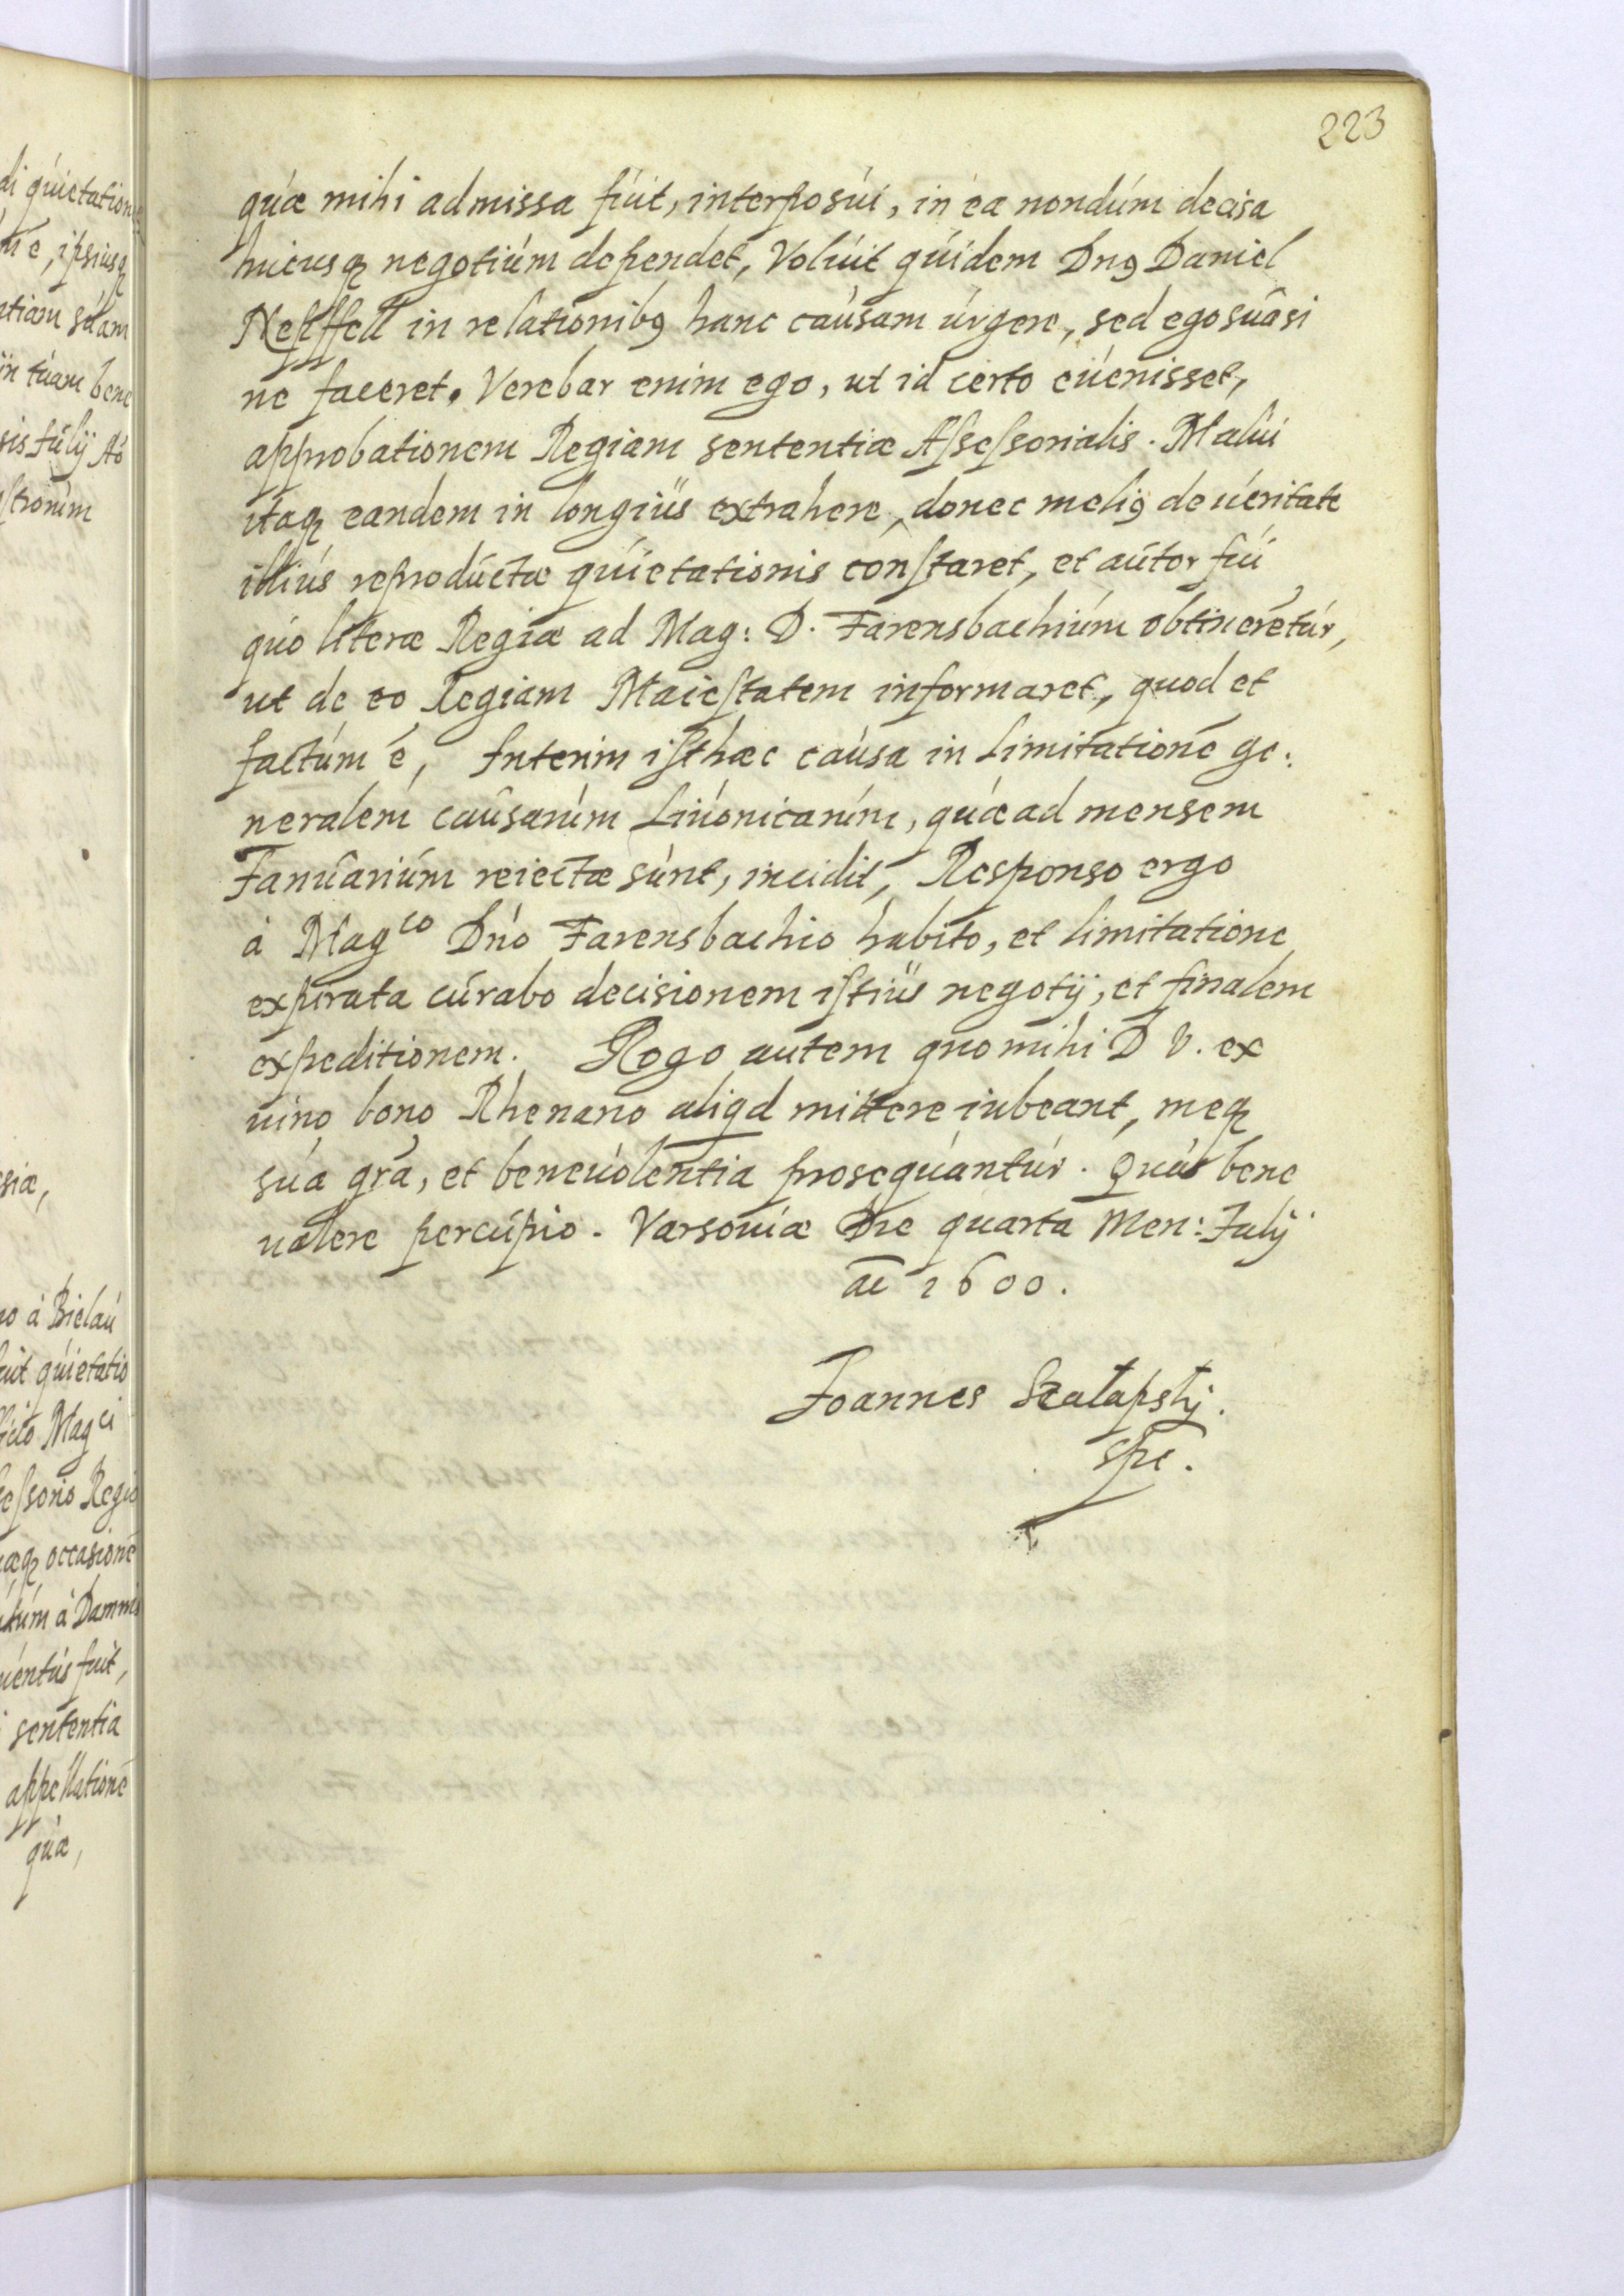 223
quæ mihi admissa fuit, interposui, in ea nondum decisa
hucusq negotium dependet, Voluit quidem Dnꝯ Daniel
in relationibꝯ hanc causam urgere, sed ego suasi
ne faceret. Verebar enim ego, ut id certo euenisset,
approbationem Regiam sententiæ Aſseſsorialis. Malui
itaqꝫ eandem in longius extrahere, donec meliꝯ de ueritate
illius reproductæ quietationis conſtaret, et autor fui
quo literæ Regiæ ad Mag: D. Farensbachium obtinerētur,
ut de eo Regiam Maieſtatem informaret, quod et
factum ē, Interim iſthæc causa in Limitationē ge:
neralem causarum Liuonicarum, quæ ad mensem
Januarium reiectæ sunt, incidit, Responso ergo
à Magco Dno Farensbachio habito, et limitatione
expirata curabo decisionem iſtius negotij, et finalem
expeditionem. Rogo autem quo mihi D V. ex
uino bono Rhenano aliqd mittere iubeant, meqꝫ
sua gra, et beneuolentia prosequantur. Quas bene
ualere percupio. Varsouiæ Die quarta Men: Julij
aē 1600.
Joannes
di quietation
ē, ipsiusqꝫ
ntiam suam
in tuam bene
sis Julij Aō
ſtrorum
siæ,
no à Bielau
uit quietatio
Magci
ſeſsorio Regio
æqꝫ occasionē
tum à Dammis
uentus fuit,
sententia
appellationē
quæ,